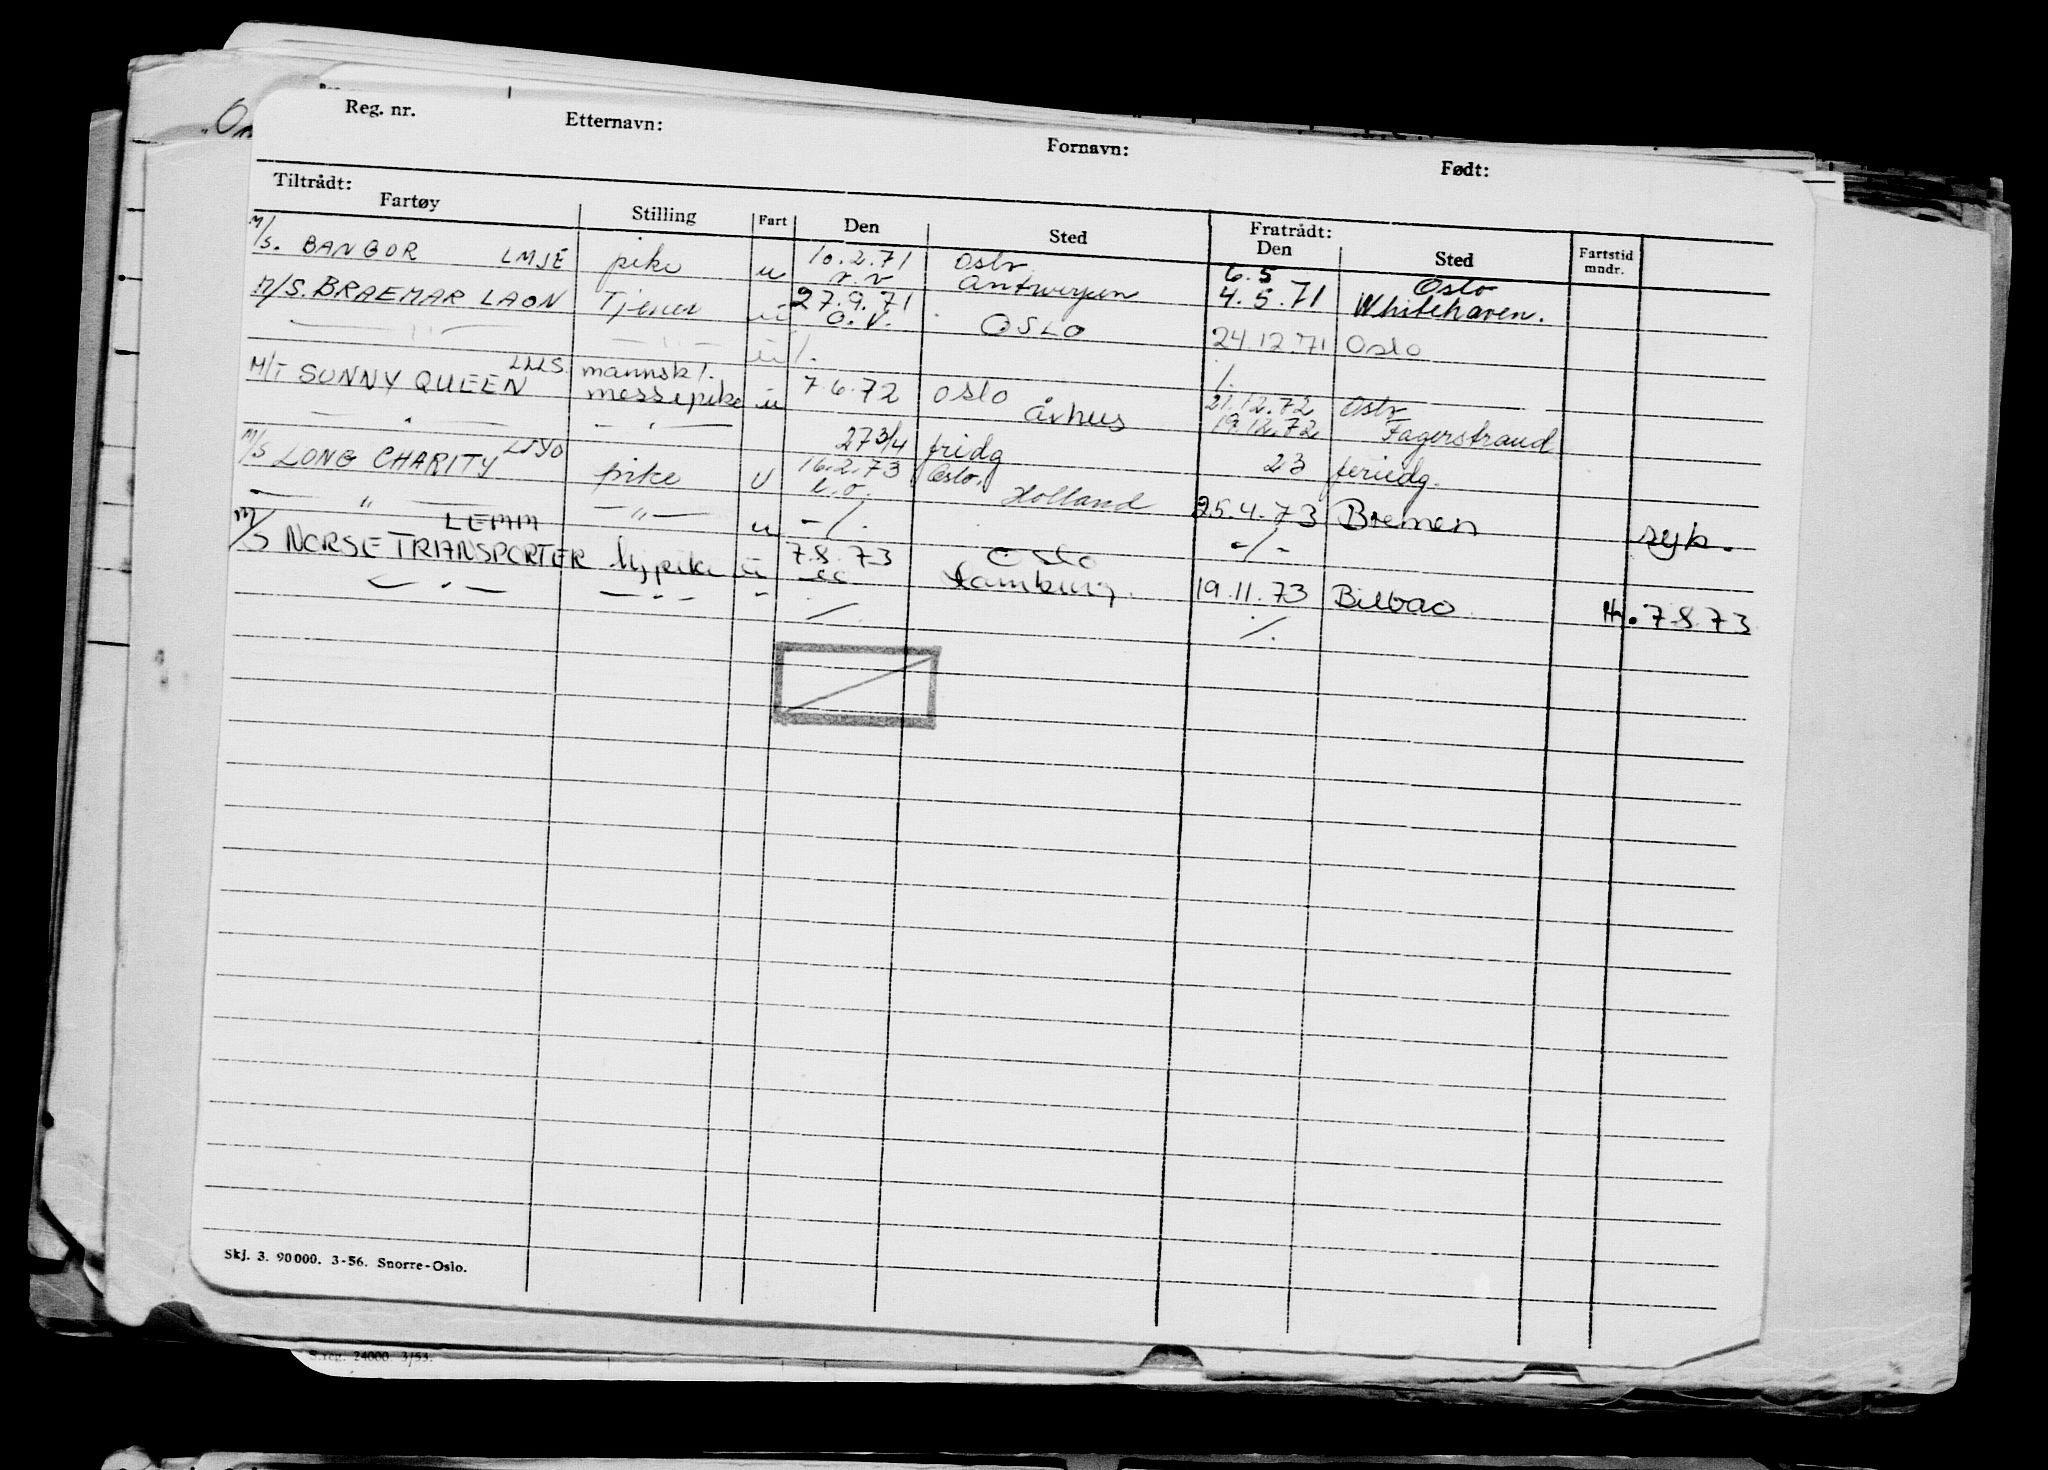 Reg. nr. Etternavn: Fornavn: Født:
Tiltrådt: Fratrådt:
Fartøy Stilling Fart Den Sted Den Sted Fartstid mndr.
M/S. BANGOR LMJE pike u 10.2.71 Oslo 6.5 Oslo
Antwerpen 4.5.71 Whitehaven.
M/S. BRAEMAR LAON Tjener u 27.9.71
— " — — " — u O.V. OSLO 24.12.71 Oslo
M/T SUNNY QUEEN LLLS mannsk./. messepike u 7.6.72 Oslo 21.12.72 Oslo
— " — — " — Århus 19.12.72 Fagerstrand
27 3/4 fridg 23 feriedg.
M/S LONG CHARITY LJYO pike u 16.2.73 Oslo.
— " — — " — u Holland 25.4.73 Bremen syk.
-/. -/-
M/S NORSE TRANSPORTER LEMM pike u 7.8.73 Oslo
— " — — " — " Hamburg. 19.11.73 Bilbao. 7.8.73
/. /.
Skj. 3. 90000. 3-56. Snorre-Oslo.
S.reg. 24000. 3/53.